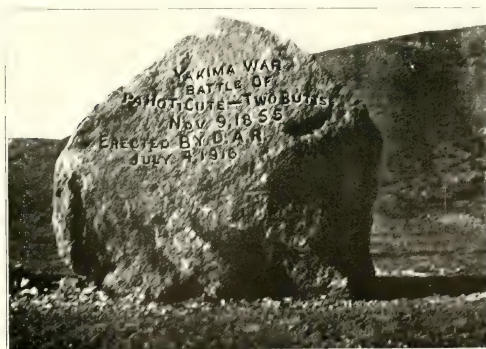 YAKIMA WAR
BATTLE OF
PAHOTICUTE—TWO BUTTES
NOV 9, 1855
ERECTED BY D.A.R.
JULY 4, 1916